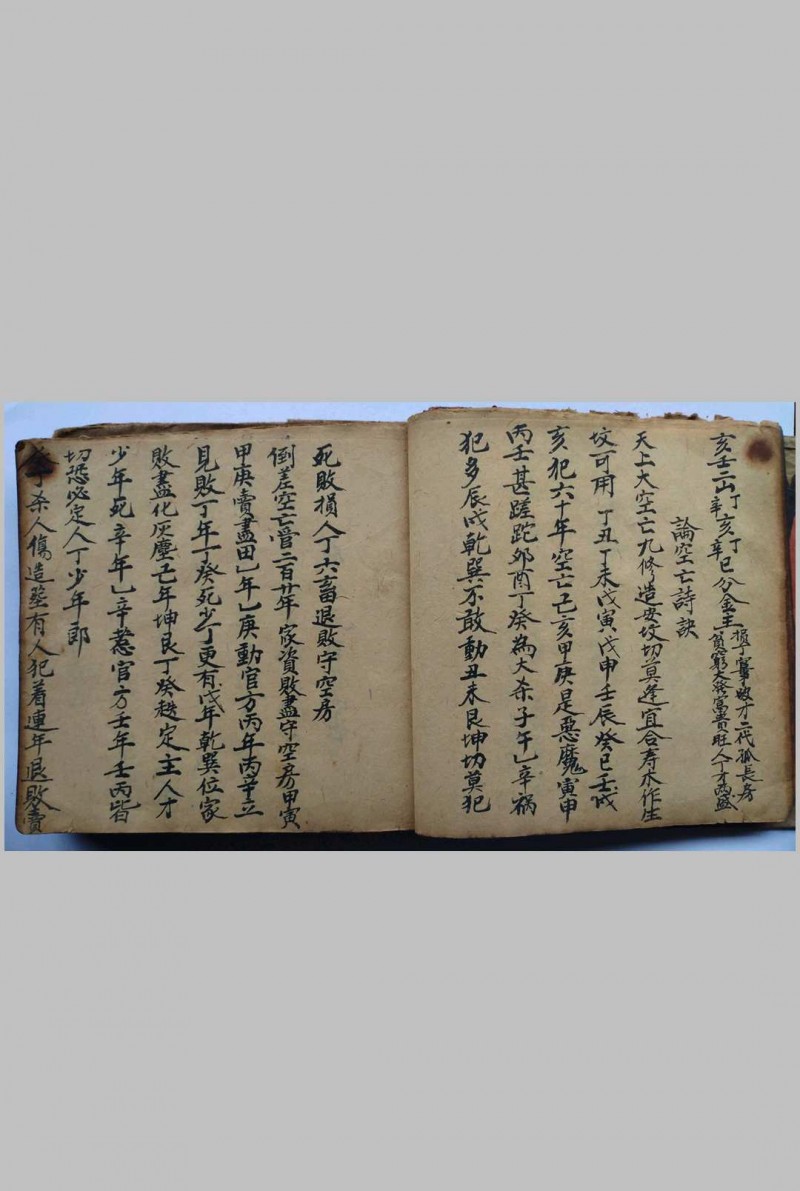 亥壬二山丁亥丁巳分金主損丁寡敗才二代孤長房
辛辛 貧窮大發富貴旺人丁才両盛
論空亡詩訣
天上大空亡九修造安坟切莫逢宜合寿木作生
坟可用丁丑丁未戊寅戊申壬辰癸巳壬戌
亥犯六十年空亡己亥甲庚是惡魔寅申
丙壬甚蹉跎夘酉丁癸為大杀子午乚辛禍
犯多辰戌乾巽不敢動丑未艮坤切莫犯
死敗損人丁六畜退敗守空房
倒差空亡管二百廿年家資敗盡守空房甲寅
甲庚賣盡田乚年乚庚動官方丙年丙辛立
見敗丁年丁癸死少丁更有戊年乾巽位家
敗盡化灰塵己年坤艮丁癸趂定主人才
少年死辛年乚辛惹官方壬年壬丙皆
切恐必定人丁少年郎
杀人傷造塟有人犯着連年退敗賣